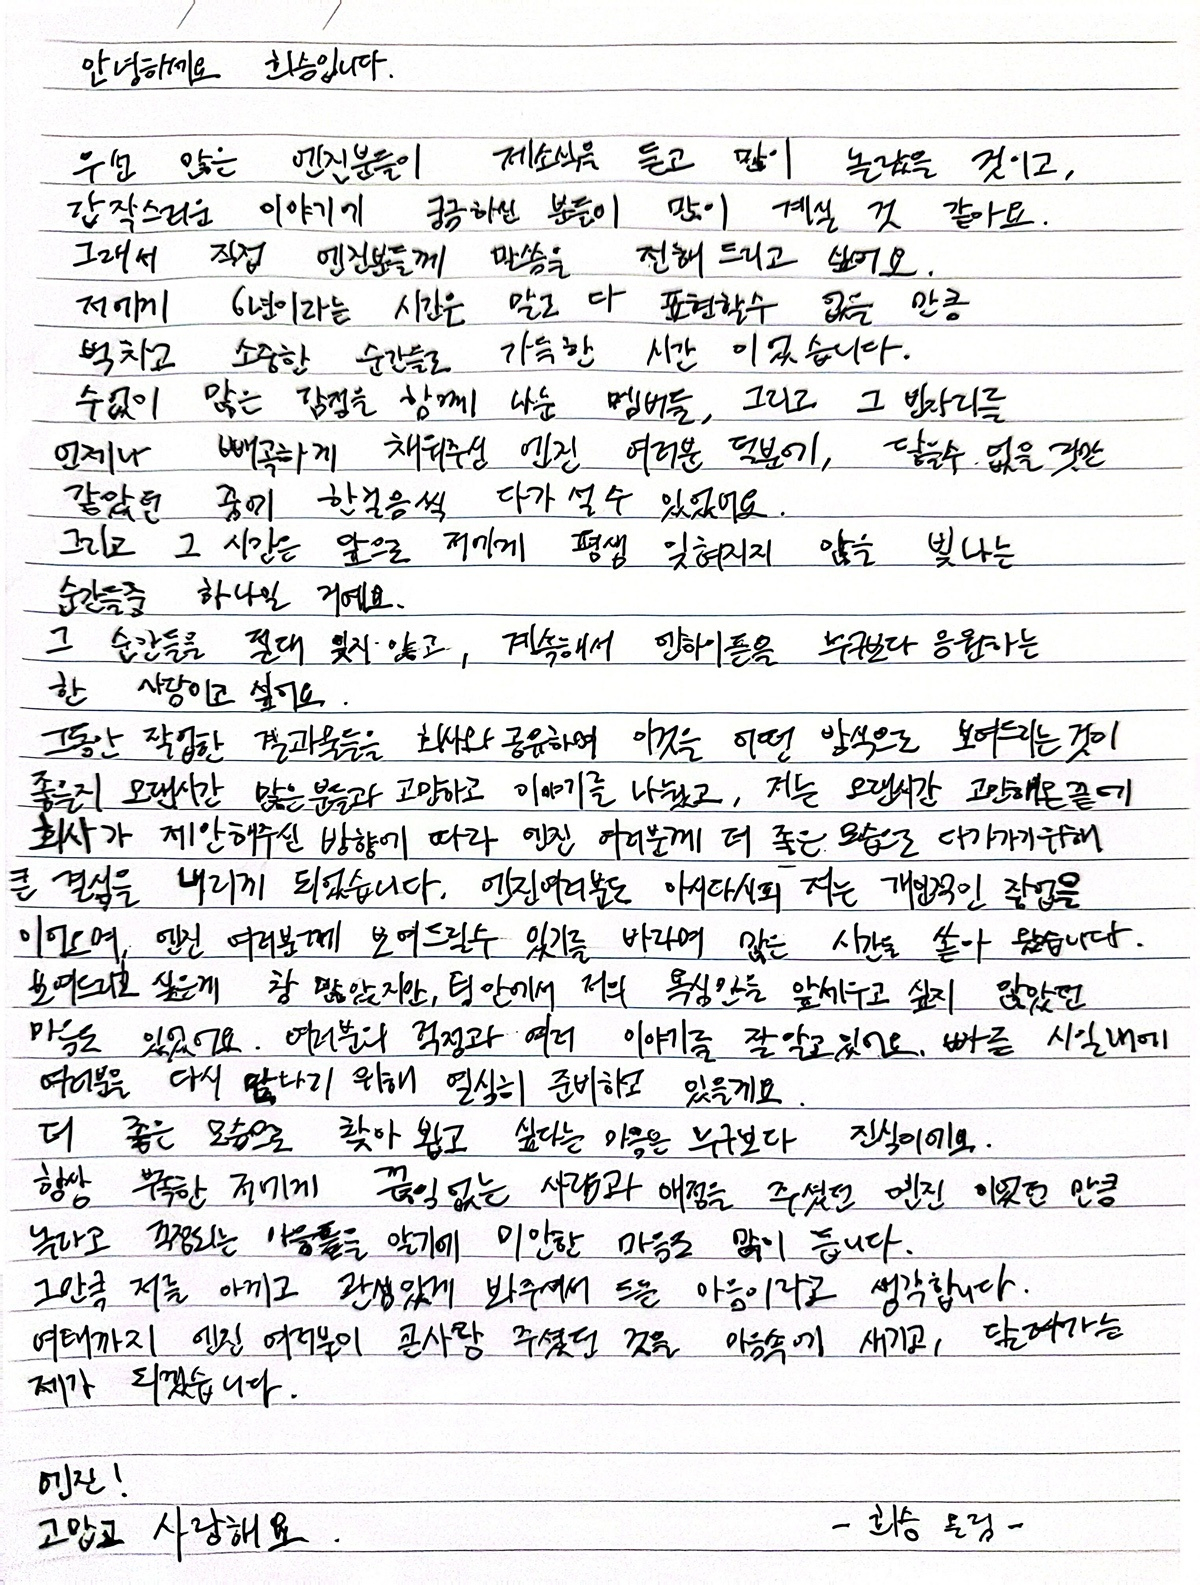 안녕하세요 희승입니다.
우선 많은 엔진분들이 제소식을 듣고 많이 놀랐을 것이고,
갑작스러운 이야기에 궁금하신 분들이 많이 계실 것 같아요.
그래서 직접 엔진분들께 말씀을 전해 드리고 싶어요.
저에게 6년이라는 시간은 말로 다 표현할수 없을 만큼
벅차고 소중한 순간들로 가득한 시간 이었습니다.
수없이 많은 감정을 함께 나눈 멤버들, 그리고 그 빈자리를
언제나 빼곡하게 채워주신 엔진 여러분 덕분에, 닿을수 없을 것만
같았던 꿈에 한걸음씩 다가 설수 있었어요.
그리고 그 시간은 앞으로 저에게 평생 잊혀지지 않을 빛나는
순간들중 하나일 거예요.
그 순간들을 절대 잊지 않고, 계속해서 엔하이픈을 누구보다 응원하는
한 사람이고 싶어요.
그동안 작업한 결과물들을 회사와 공유하며 이것을 어떤 방식으로 보여드리는것이
좋을지 오랜시간 많은분들과 고민하고 이야기를 나눴고, 저는 오랜시간 고민해온끝에
회사가 제안해주신 방향에 따라 엔진 여러분께 더 좋은 모습으로 다가가기위해
큰 결심을 내리게 되었습니다. 엔진여러분도 아시다시피 저는 개인적인 작업을
이어오며, 엔진 여러분께 보여드릴수 있기를 바라며 많은 시간을 쏟아 왔습니다.
보여드리고 싶은게 참 많았지만, 팀 안에서 저의 욕심만을 앞세우고 싶지 않았던
마음도 있었어요. 여러분의 걱정과 여러 이야기를 잘 알고 있어요. 빠른 시일내에
여러분을 다시 만나기 위해 열심히 준비하고 있을게요.
더 좋은 모습으로 찾아 뵙고 싶다는 마음은 누구보다 진심이에요.
항상 부족한 저에게 끊임없는 사랑과 애정을 주셨던 엔진 이었던 만큼
놀라고 걱정되는 마음들을 알기에 미안한 마음도 많이 듭니다.
그만큼 저를 아끼고 관심있게 봐주셔서 드는 마음이라고 생각합니다.
여태까지 엔진 여러분이 큰사랑 주셨던 것을 마음속에 새기고, 달려가는
제가 되겠습니다.
엔진!
고맙고 사랑해요.
- 희승 올림 -